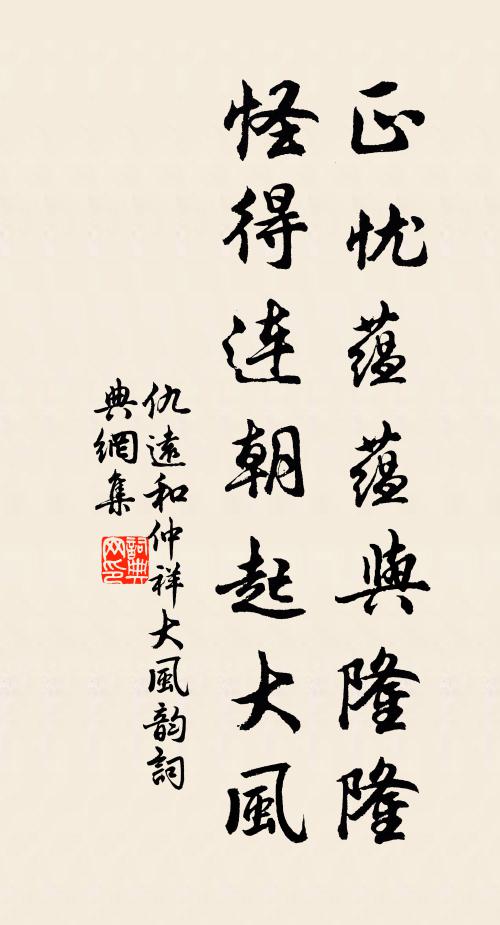 正忧蕴蕴與隆隆
怪得連朝起大風
仇遠和仲祥大風韵詞
典網集
詞典网印